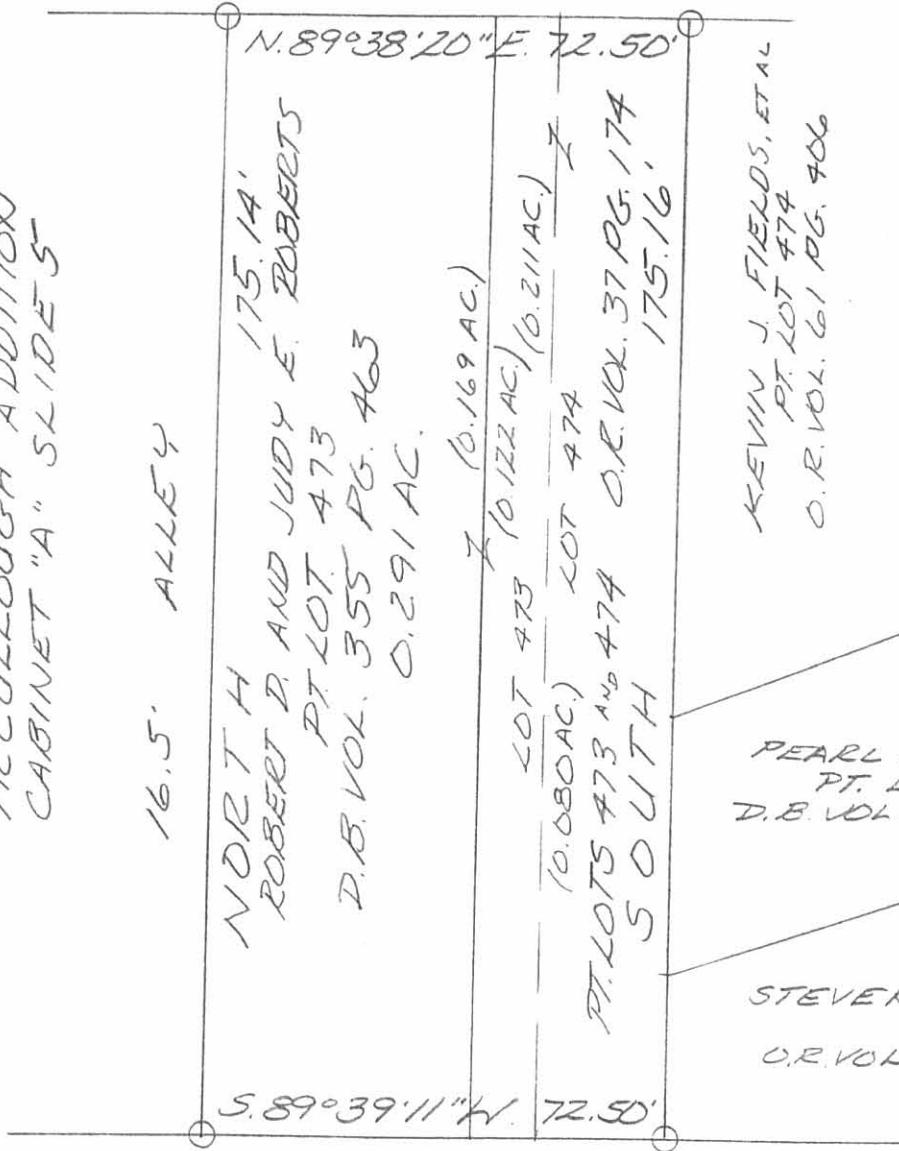 ADDITION
CABINET "A" SLIDE 5
16.5' ALLEY
N. 89°38'20" E. 72.50'
NORTH 175.14'
ROBERT D. AND JUDY E. ROBERTS
PT. LOT 473
D.B. VOL. 355 PG. 463
0.291 AC.
Z (0.169 AC.)
LOT 473 (0.122 AC.) (0.211 AC.) Z
(0.080 AC.) LOT 474
PT. LOTS 473 AND 474 O.R. VOL. 37 PG. 174
SOUTH 175.16'
S. 89°39'11" W. 72.50'
KEVIN J. FIELDS, ET AL
PT. LOT 474
O.R. VOL. 61 PG. 406
PEARL
PT.
D.B. VOL
STEVEN
O.R. VOL